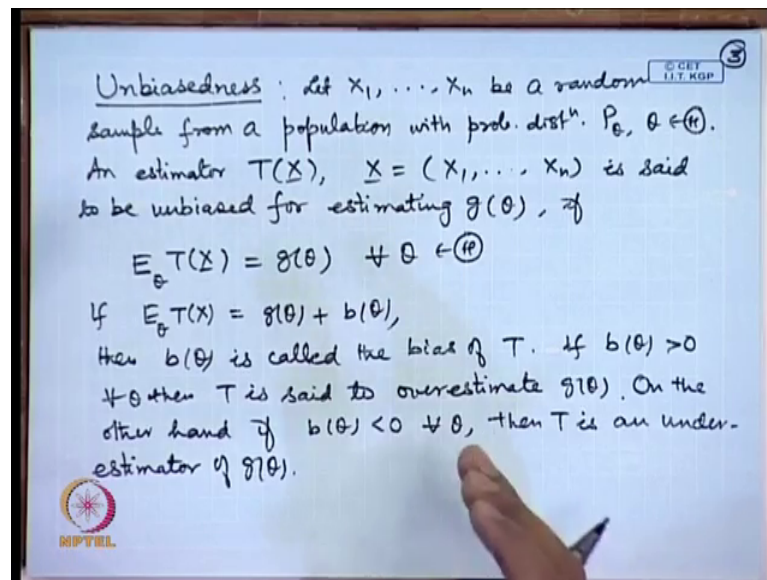 ③
© CET
I.I.T. KGP
Unbiasedness : Let X₁, ..., Xₙ be a random
sample from a population with prob. distⁿ. P_θ, θ ∈ Ⓗ.
An estimator T(X), X = (X₁, ..., Xₙ) is said
to be unbiased for estimating g(θ), if
E_θ T(X) = g(θ) ∀ θ ∈ Ⓗ
If E_θ T(X) = g(θ) + b(θ),
then b(θ) is called the bias of T. If b(θ) > 0
∀ θ then T is said to overestimate g(θ). On the
other hand if b(θ) < 0 ∀ θ, then T is an under-
estimator of g(θ).
NPTEL